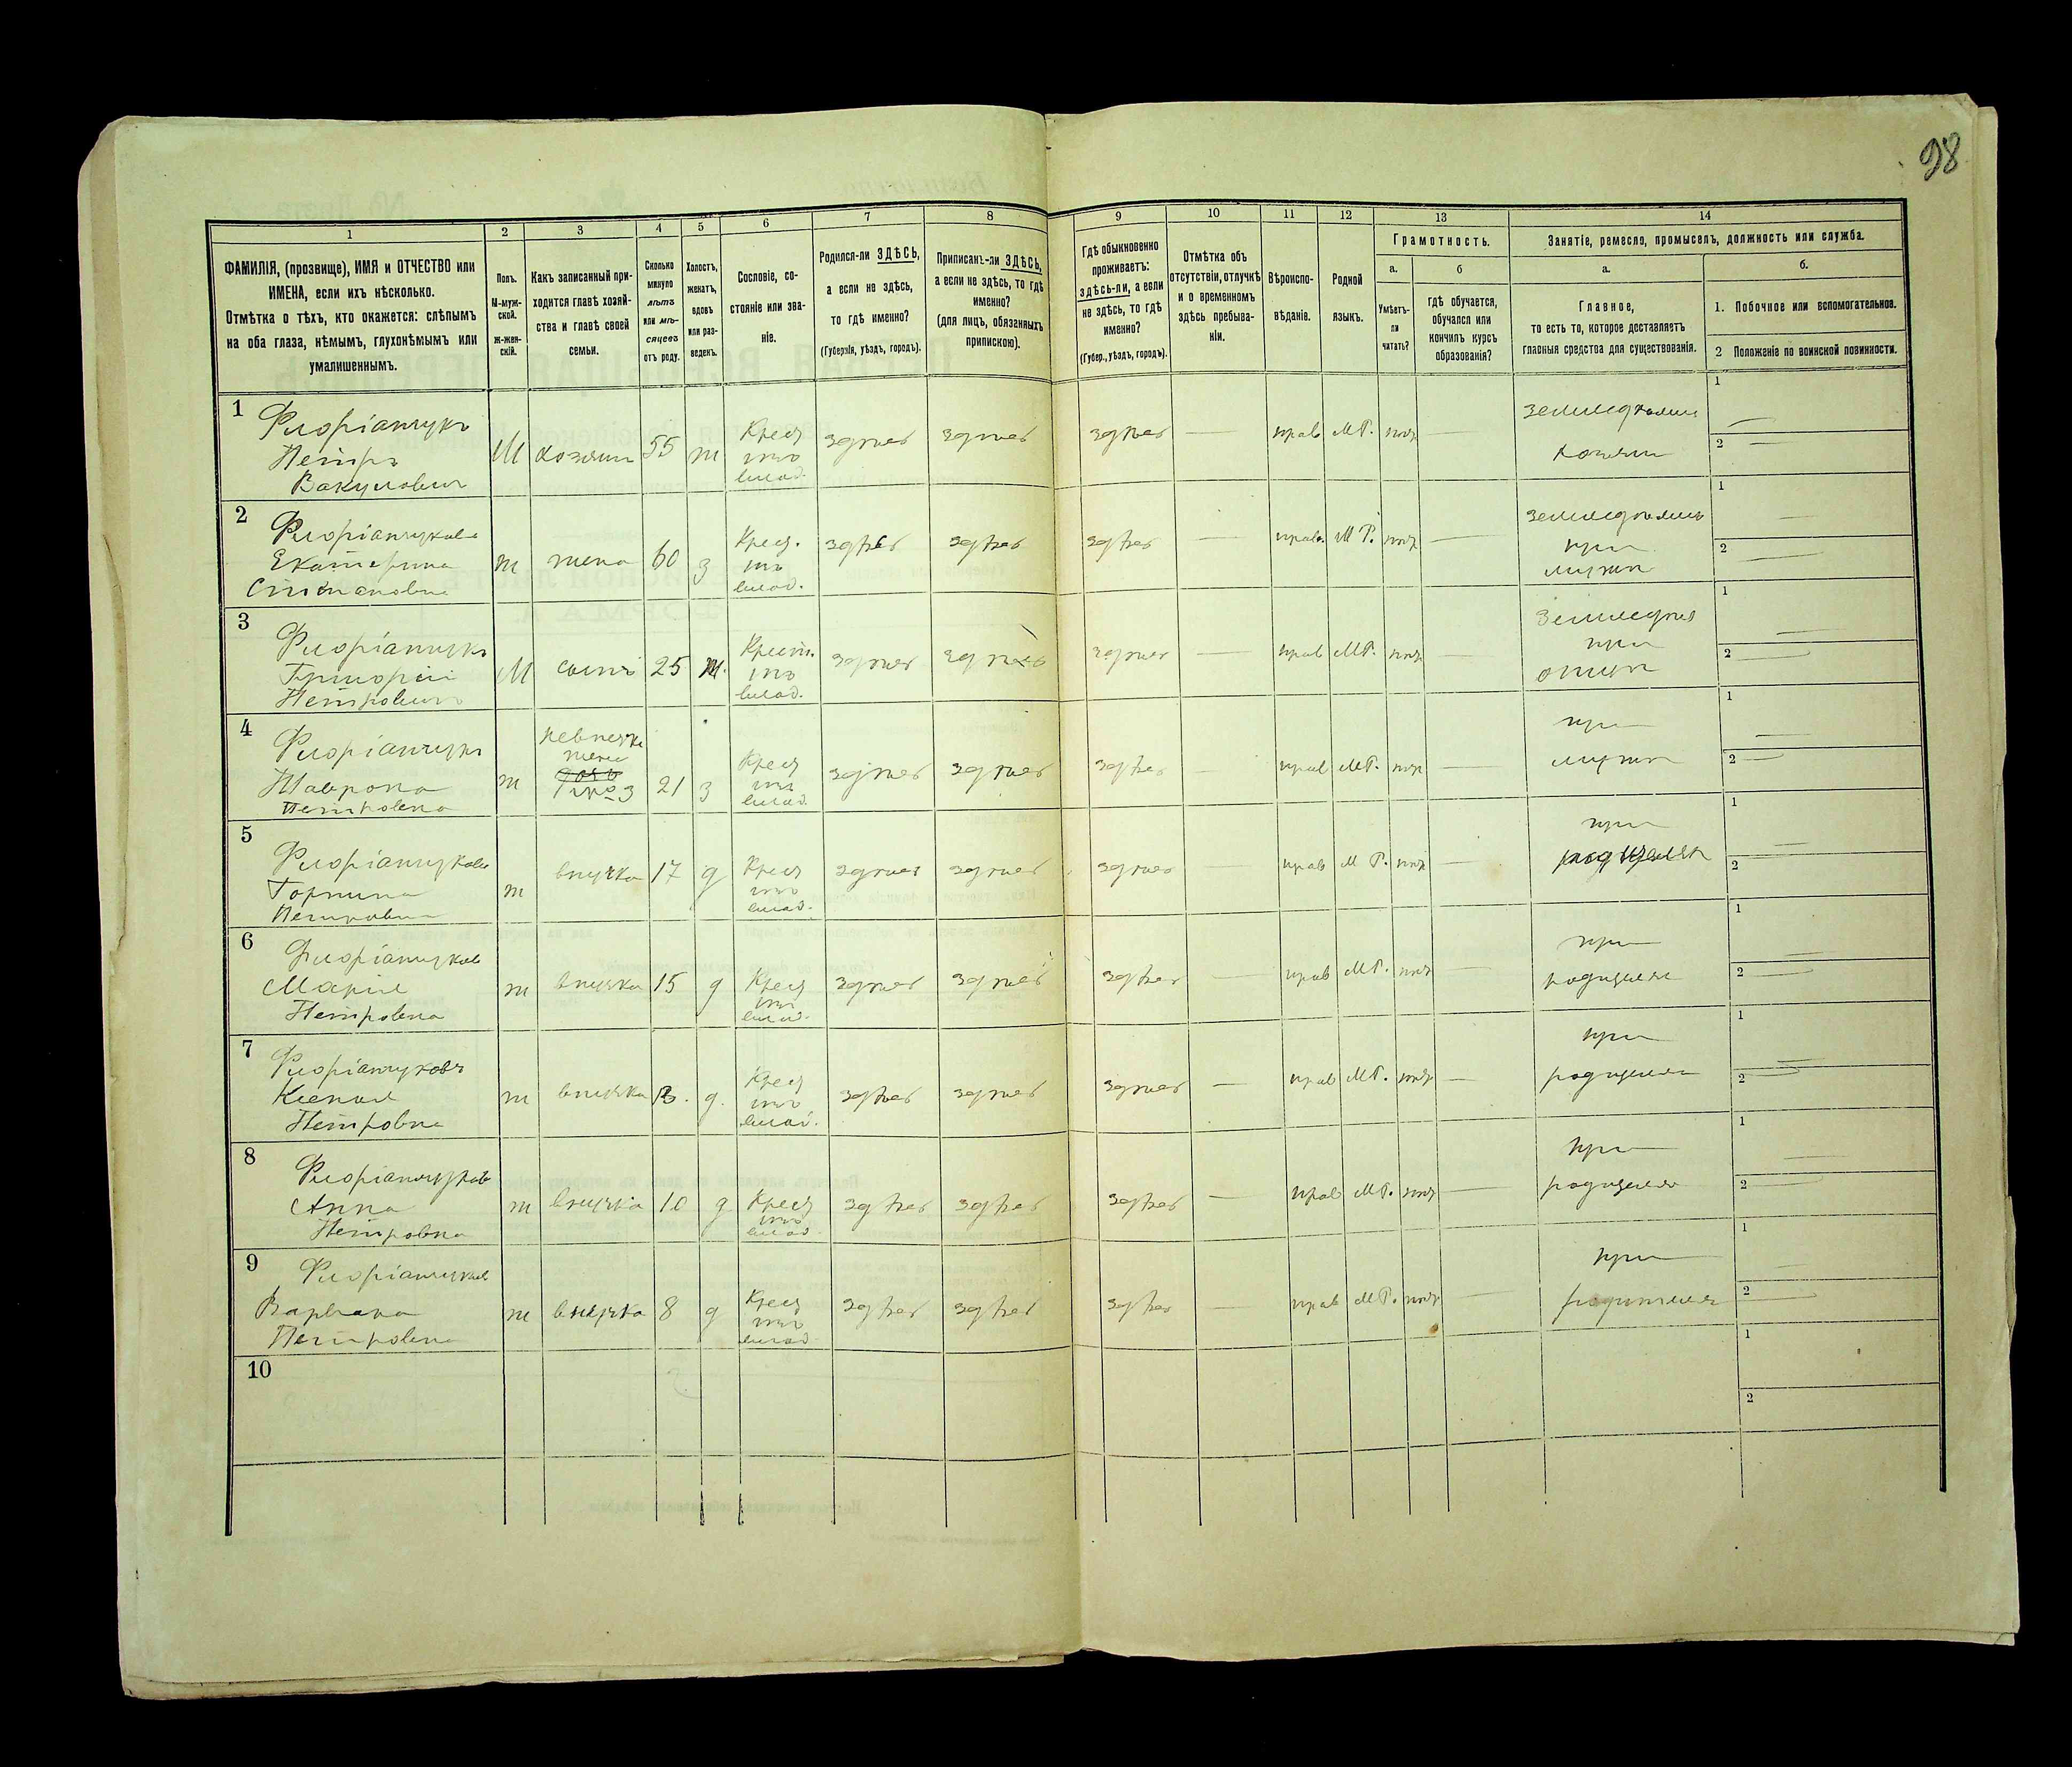 98
1 2 3 4 5 6 7 8 9 10 11 12 13 14
ФАМИЛІЯ, (прозвище), ИМЯ и ОТЧЕСТВО или
ИМЕНА, если ихъ нѣсколько.
Отмѣтка о тѣхъ, кто окажется: слѣпымъ
на оба глаза, нѣмымъ, глухонѣмымъ или
умалишеннымъ.
Полъ.
М-муж-
ской.
Ж-жен-
скій.
Какъ записанный при-
ходится главѣ хозяй-
ства и главѣ своей
семьи.
Сколько
минуло
лѣтъ
или мѣ-
сяцевъ
отъ роду.
Холостъ,
женатъ,
вдовъ
или раз-
веденъ.
Сословіе, со-
стояніе или зва-
ніе.
Родился-ли ЗДѢСЬ,
а если не здѣсь,
то гдѣ именно?
(Губернія, уѣздъ, городъ).
Приписанъ-ли ЗДѢСЬ,
а если не здѣсь, то гдѣ
именно?
(для лицъ, обязанныхъ
припискою).
Гдѣ обыкновенно
проживаетъ:
здѣсь-ли, а если
не здѣсь, то гдѣ
именно?
(Губер., уѣздъ, городъ).
Отмѣтка объ
отсутствіи, отлучкѣ
и о временномъ
здѣсь пребыва-
ніи.
Вѣроиспо-
вѣданіе.
Родной
языкъ.
Грамотность.
а.
Умѣетъ-
ли
читать?
б
гдѣ обучается,
обучался или
кончилъ курсъ
образованія?
Занятіе, ремесло, промыселъ, должность или служба.
а.
Главное,
то есть то, которое доставляетъ
главныя средства для существованія.
б.
1. Побочное или вспомогательное.
2 Положеніе по воинской повинности.
1 Флоріанчукъ
Петръ
Вакуловичъ
М хозяинъ 55 ж Крест
изъ
влад.
здѣсь здѣсь здѣсь — прав М Р. нѣтъ —
земледѣлецъ
хозяинъ
1 —
2 —
2 Флоріанчукова
Екатерина
Степановна
ж жена 60 з Крест.
изъ
влад.
здѣсь здѣсь здѣсь — прав. М Р. нѣтъ —
земледѣлецъ
при
мужѣ
1 —
2 —
3 Флоріанчукъ
Григорій
Петровичъ
М сынъ 25 ж. Крест.
изъ
влад.
здѣсь здѣсь здѣсь — прав МР. нѣтъ —
Земледѣл
при
отцѣ
1 —
2 —
4 Флоріанчукъ
Петровна
ж невѣстка
жена
21 з Крест
изъ
влад.
здѣсь здѣсь здѣсь — прав МР. нѣтъ —
при
мужѣ
1 —
2 —
5 Флоріанчукова
Горпина
Петровна
ж внучка 17 д Крест
изъ
влад.
здѣсь здѣсь здѣсь — прав М Р. нѣтъ —
при
родителя
1
2
6 Флоріанчуков
Марія
Петровна
ж внучка 15 д Крест
изъ
влад.
здѣсь здѣсь здѣсь — прав МР. нѣтъ —
при
родителя
1 —
2 —
7 Флоріанчукова
Ксенія
Петровна
ж внучка 13. д. Крест
изъ
влад.
здѣсь здѣсь здѣсь — прав МР. нѣтъ —
при
родителя
1 —
2 —
8 Флоріанчуков
Анна
Петровна
ж внучка 10 д Крест
изъ
влад
здѣсь здѣсь здѣсь — прав МР. нѣтъ —
при
родителя
1 —
2 —
9 Флоріанчуков
Варвара
Петровна
ж внучка 8 д Крест
изъ
влад
здѣсь здѣсь здѣсь — прав МР. нѣтъ —
при
родителя
1
2 —
10
1
2